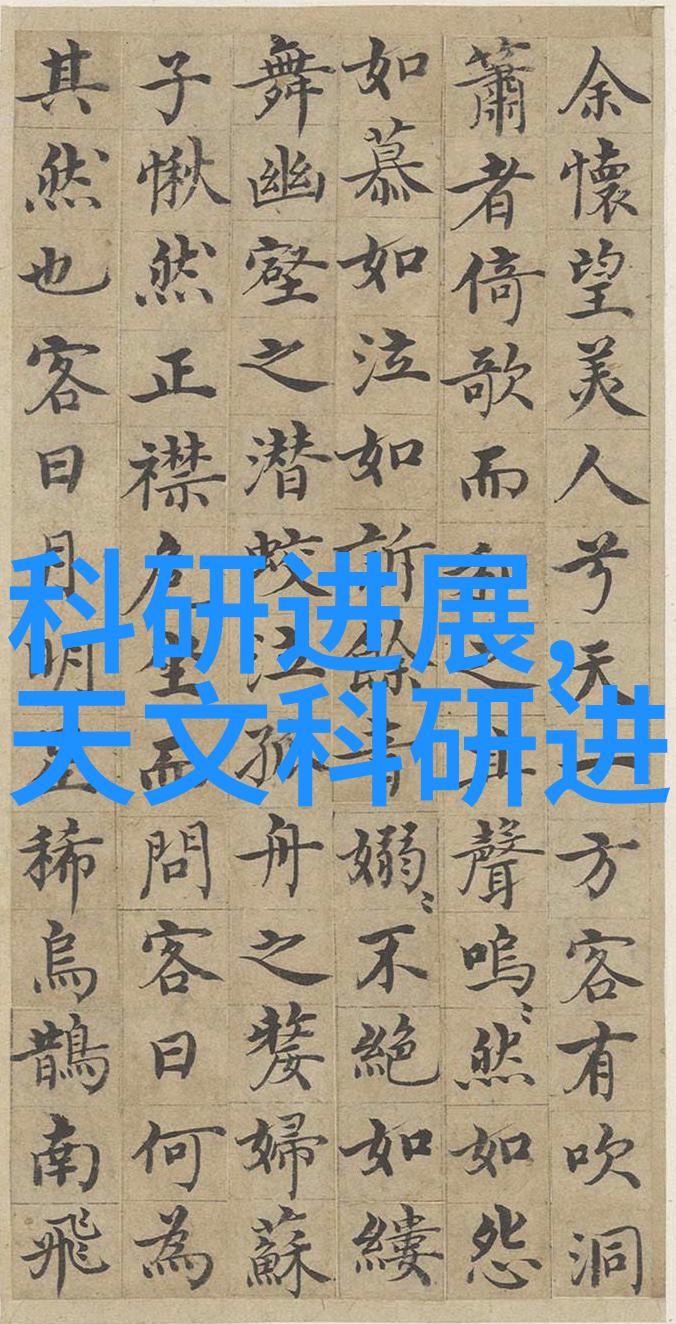 科研进展,
天文科研进
余懷望美人兮天一方客有吹洞
簫者倚歌而和之其聲嗚〻然如怨
如慕如泣如訴餘音嫋〻不絶如縷
舞幽壑之潜蛟泣孤舟之嫠婦蘇
子愀然正襟危坐而問客曰何為
其然也客曰月明星稀烏鵲南飛